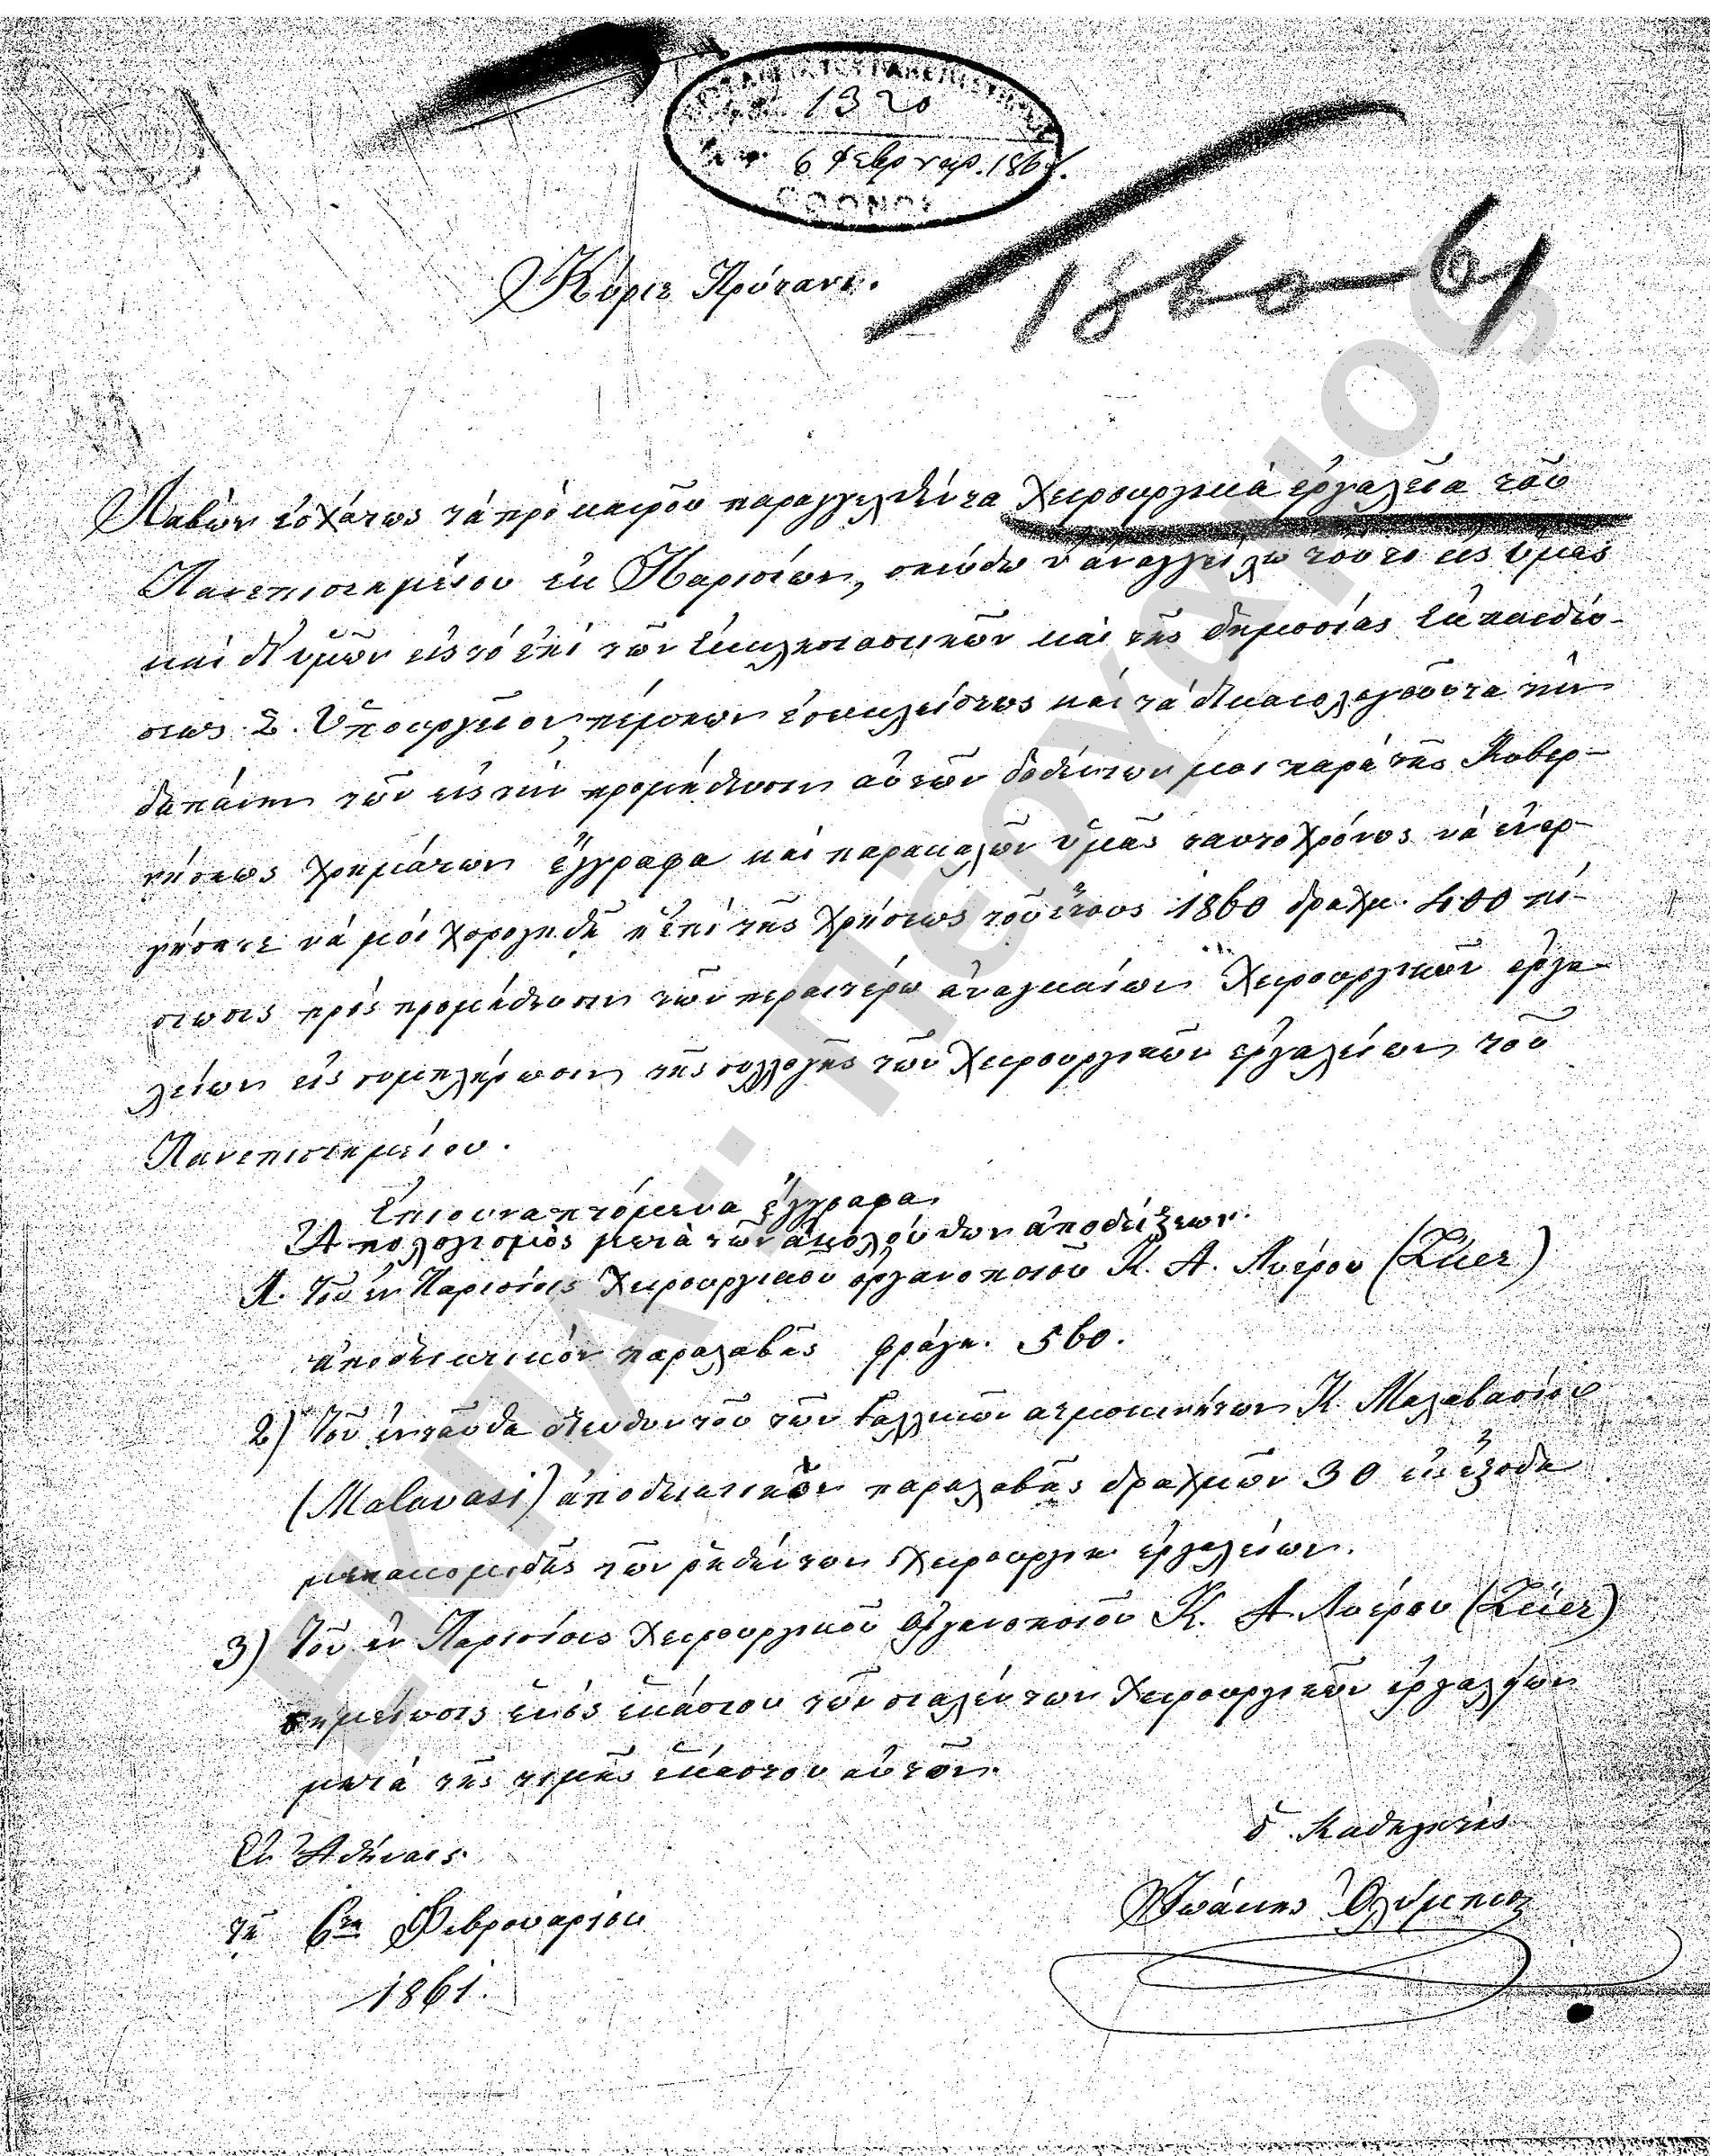 1320
6 Φεβρουαρ. 1861.
ΟΘΩΝΟΣ
Κύριε Πρύτανι.
1860-61
Λαβὼν ἐσχάτως τὰ πρὸ καιροῦ παραγγελθέντα χειρουργικὰ ἐργαλεῖα τοῦ
Πανεπιστημείου ἐκ Παρισίων, σπεύδω ν' ἀναγγείλω τοῦτο εἰς ὑμᾶς
καὶ δι' ὑμῶν εἰς τὸ ἐπὶ τῶν Ἐκκλησιαστικῶν καὶ τῆς δημοσίας ἐκπαιδεύ-
σεως Σ. Ὑπουργεῖον, πέμπων ἐσωκλείστως καὶ τὰ δικαιολογοῦντα τὴν
δαπάνην τῶν εἰς τὴν προμήθευσιν αὐτῶν δοθέντων μοι παρὰ τῆς Κυβερ-
νήσεως χρημάτων ἔγγραφα καὶ παρακαλῶν ὑμᾶς ταυτοχρόνως νὰ ἐνερ-
γήσητε νὰ μοὶ χορηγηθῇ ἐπὶ τῆς χρήσεως τοῦ ἔτους 1860 δραχμ. 400 πί-
στωσις πρὸς προμήθευσιν τῶν περαιτέρω ἀναγκαίων χειρουργικῶν ἐργα-
λείων εἰς συμπλήρωσιν τῆς συλλογῆς τῶν χειρουργικῶν ἐργαλείων τοῦ
Πανεπιστημείου.
Ἐπισυναπτόμενα ἔγγραφα
Ἀπολογισμὸς μετὰ τῶν ἀκολούθων ἀποδείξεων.
1. Τοῦ ἐν Παρισίοις χειρουργικοῦ ὀργανοποιοῦ Κ. Α. Λυέρου (Lüer)
ἀποδεικτικὸν παραλαβῆς φράγκ. 560.
2) Τοῦ ἐνταῦθα διευθυντοῦ τῶν Γαλλικῶν ἀτμοκινήτων Κ. Μαλαβασίου
(Malavasi) ἀποδεικτικὸν παραλαβῆς δραχμῶν 30 εἰς ἔξοδα
μετακομιδῆς τῶν ῥηθέντων χειρουργικ. ἐργαλείων.
3) Τοῦ ἐν Παρισίοις χειρουργικοῦ ὀργανοποιοῦ Κ. Α Λυέρου (Lüer)
σημείωσις ἑνὸς ἑκάστου τῶν σταλέντων χειρουργικῶν ἐργαλείων
μετὰ τῆς τιμῆς ἑκάστου αὐτῶν.
Ἐν Ἀθήναις
τῇ 6τῃ Φεβρουαρίου
1861.
ὁ Καθηγητὴς
Ἰωάννης Ὀλύμπιος
ΕΚΠΑ: Πέργαμος